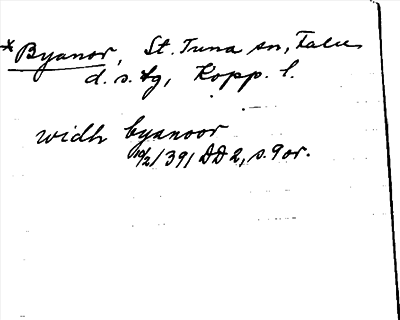 *Byanor, St. Tuna sn, Falu
d. s. tg, Kopp. l.
widh byanoor
10/2 1391 DD 2, s. 9 or.